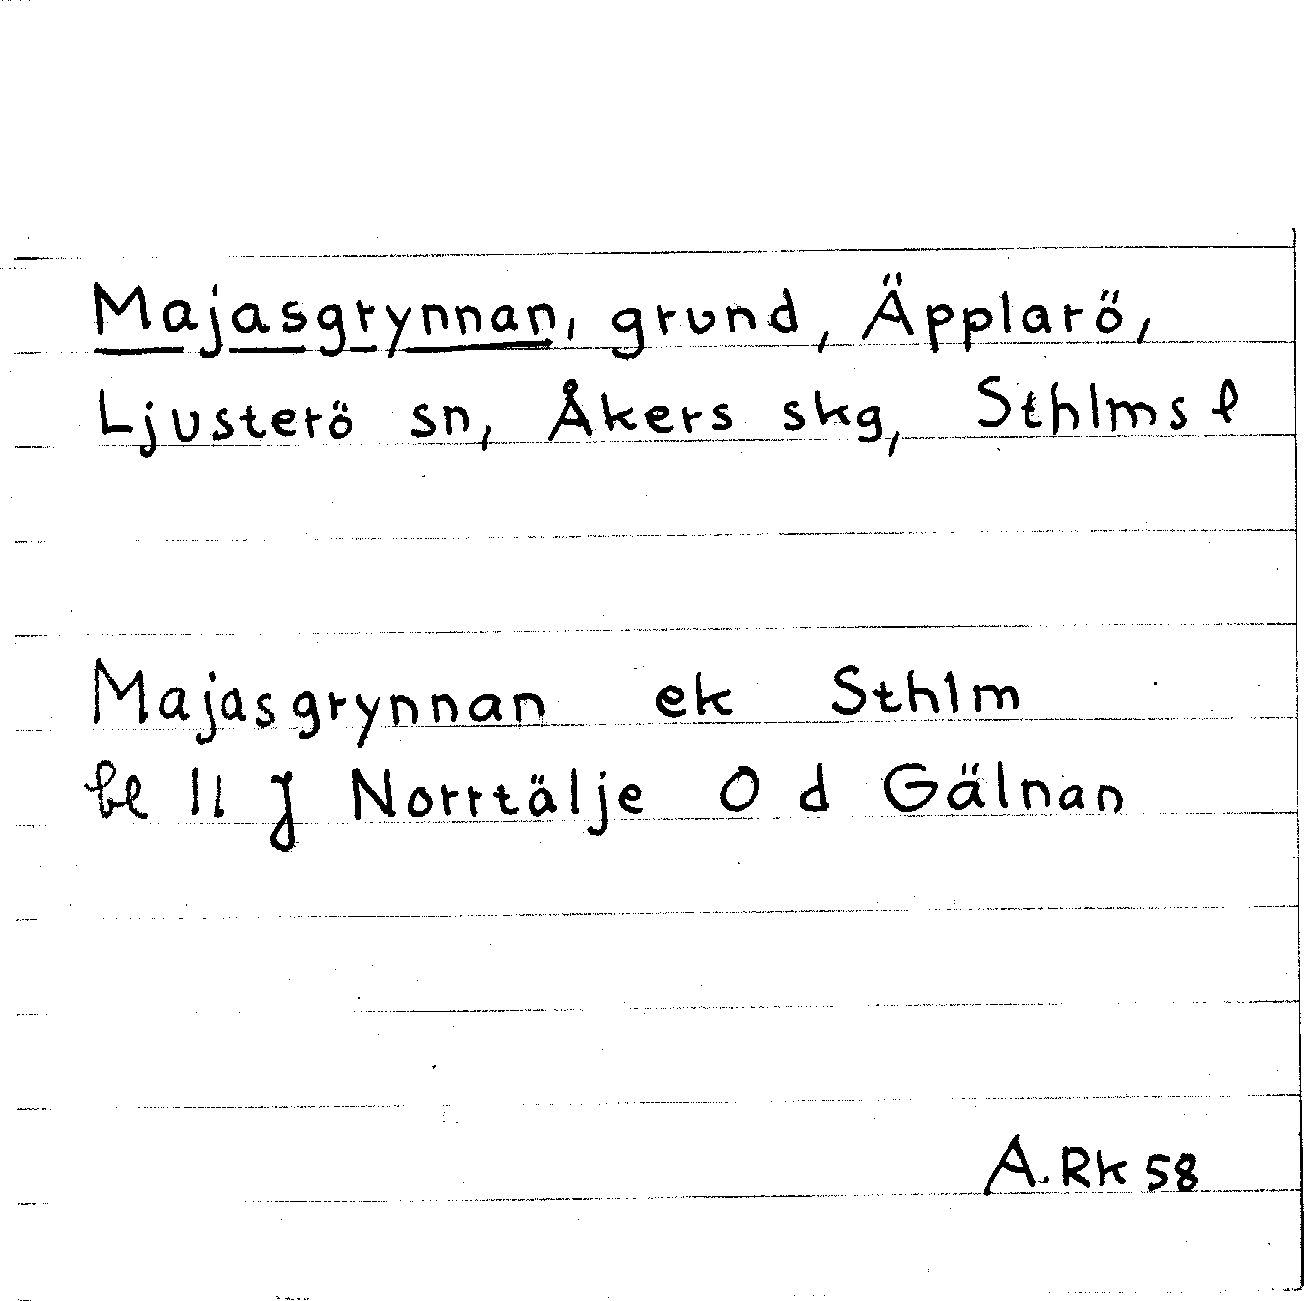 Majasgrynnan, grund, Äpplarö,
Ljusterö sn, Åkers skg, Sthlms l
Majasgrynnan ek Sthlm
bl 11 J Norrtälje O d Gälnan
A. Rk 58